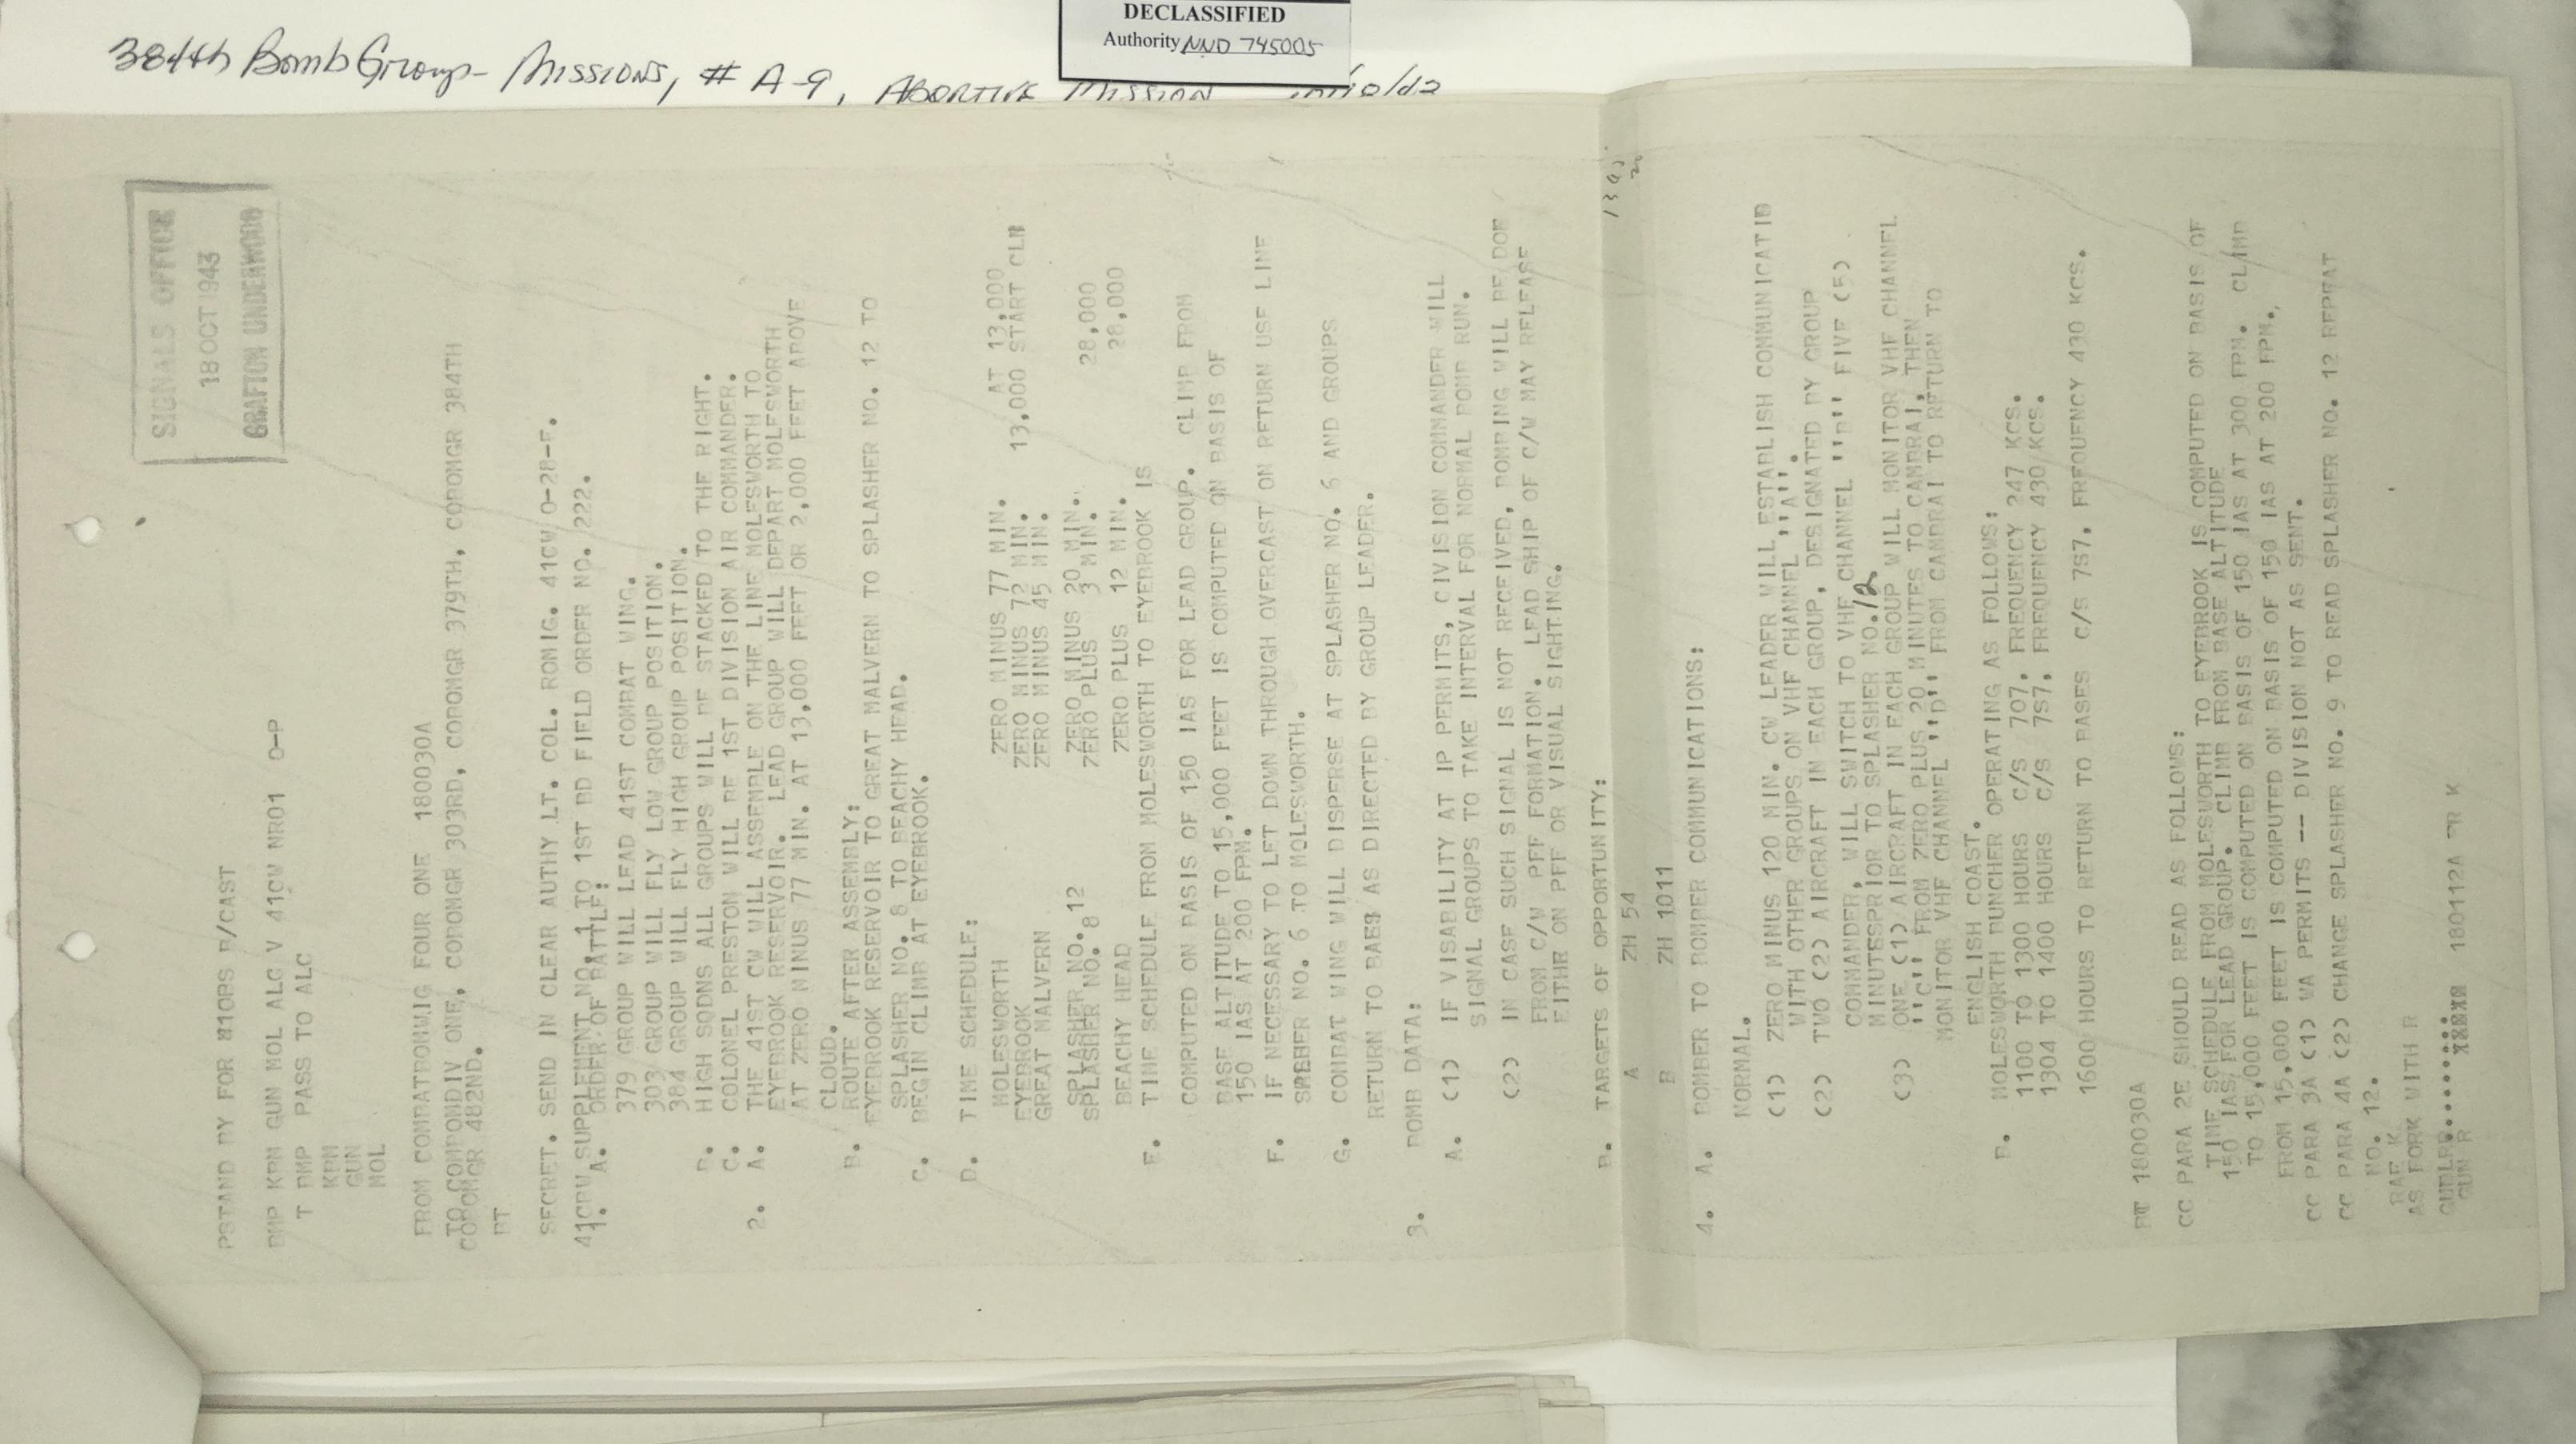 DECLASSIFIED
Authority NND 745005
384th Bomb Group - Missions, # A-9, ABORTIVE MISSION
SIGNALS OFFICE
18 OCT 1943
GRAFTON UNDERWOOD
PSTAND BY FOR M1OBS B/CAST
BMP KPM GUN MOL ALG V 41CW NR01 O-P
T BMP PASS TO ALC
KPM
GUN
MOL
FROM COMBATBOMWIG FOUR ONE 180030A
TO COMBOMDIV ONE, COBOMGR 303RD, COBOMGR 379TH, COBOMGR 384TH
COBOMGR 482ND.
BT
SECRET. SEND IN CLEAR AUTHY LT. COL. ROMIG. 41CW O-28-F.
41CBW SUPPLEMENT NO. 1 TO 1ST BD FIELD ORDER NO. 222.
1. A. ORDER OF BATTLE:
379 GROUP WILL LEAD 41ST COMBAT WING.
303 GROUP WILL FLY LOW GROUP POSITION.
384 GROUP WILL FLY HIGH GROUP POSITION.
B. HIGH SQDNS ALL GROUPS WILL BE STACKED TO THE RIGHT.
C. COLONEL PRESTON WILL BE 1ST DIVISION AIR COMMANDER.
2. A. THE 41ST CW WILL ASSEMBLE ON THE LINE MOLESWORTH TO
EYEBROOK RESERVOIR. LEAD GROUP WILL DEPART MOLESWORTH
AT ZERO MINUS 77 MIN. AT 13,000 FEET OR 2,000 FEET ABOVE
CLOUD.
B. ROUTE AFTER ASSEMBLY:
EYEBROOK RESERVOIR TO GREAT MALVERN TO SPLASHER NO. 12 TO
SPLASHER NO. 8 TO BEACHY HEAD.
C. BEGIN CLIMB AT EYEBROOK.
D. TIME SCHEDULE:
MOLESWORTH ZERO MINUS 77 MIN. AT 13,000
EYEBROOK ZERO MINUS 72 MIN. 13,000 START CLM
GREAT MALVERN ZERO MINUS 45 MIN.
SPLASHER NO. 12 ZERO MINUS 20 MIN.
SPLASHER NO. 8 ZERO PLUS 3 MIN. 28,000
BEACHY HEAD ZERO PLUS 12 MIN. 28,000
E. TIME SCHEDULE FROM MOLESWORTH TO EYEBROOK IS
COMPUTED ON BASIS OF 150 IAS FOR LEAD GROUP. CLIMB FROM
BASE ALTITUDE TO 15,000 FEET IS COMPUTED ON BASIS OF
150 IAS AT 200 FPM.
F. IF NECESSARY TO LET DOWN THROUGH OVERCAST ON RETURN USE LINE
SPEBER NO. 6 TO MOLESWORTH.
G. COMBAT WING WILL DISPERSE AT SPLASHER NO. 6 AND GROUPS
RETURN TO BAES AS DIRECTED BY GROUP LEADER.
3. BOMB DATA:
A. (1) IF VISABILITY AT IP PERMITS, CIVISION COMMANDER WILL
SIGNAL GROUPS TO TAKE INTERVAL FOR NORMAL BOMB RUN.
(2) IN CASE SUCH SIGNAL IS NOT RECEIVED, BOMBING WILL BE DOE
FROM C/W PFF FORMATION. LEAD SHIP OF C/W MAY RELEASE
EITHR ON PFF OR VISUAL SIGHTING.
B. TARGETS OF OPPORTUNITY:
A ZH 54
B ZH 1011
4. A. BOMBER TO BOMBER COMMUNICATIONS:
NORMAL.
(1) ZERO MINUS 120 MIN. CW LEADER WILL ESTABLISH COMMUNICATIO
WITH OTHER GROUPS ON VHF CHANNEL ''A''.
(2) TWO (2) AIRCRAFT IN EACH GROUP, DESIGNATED BY GROUP
COMMANDER, WILL SWITCH TO VHF CHANNEL ''B'' FIVE (5)
MINUTESPRIOR TO SPLASHER NO. 12
(3) ONE (1) AIRCRAFT IN EACH GROUP WILL MONITOR VHF CHANNEL
''C'' FROM ZERO PLUS 20 MINUTES TO CAMBRAI, THEN
MONITOR VHF CHANNEL ''D'' FROM CAMBRAI TO RETURN TO
ENGLISH COAST.
B. MOLESWORTH BUNCHER OPERATING AS FOLLOWS:
1100 TO 1300 HOURS C/S 7O7, FREQUENCY 247 KCS.
1304 TO 1400 HOURS C/S 7S7, FREQUENCY 430 KCS.
1600 HOURS TO RETURN TO BASES C/S 7S7, FREQUENCY 430 KCS.
BT 180030A
CC PARA 2E SHOULD READ AS FOLLOWS:
TIME SCHEDULE FROM MOLESWORTH TO EYEBROOK IS COMPUTED ON BASIS OF
150 IAS FOR LEAD GROUP. CLIMB FROM BASE ALTITUDE
TO 15,000 FEET IS COMPUTED ON BASIS OF 150 IAS AT 300 FPM. CLIMB
FROM 15,000 FEET IS COMPUTED ON BASIS OF 150 IAS AT 200 FPM.,
CC PARA 3A (1) WA PERMITS -- DIVISION NOT AS SENT.
CC PARA 4A (2) CHANGE SPLASHER NO. 9 TO READ SPLASHER NO. 12 REPEAT
NO. 12.
RAF K
AS FORK WITH R
GUN R 180112A PR K